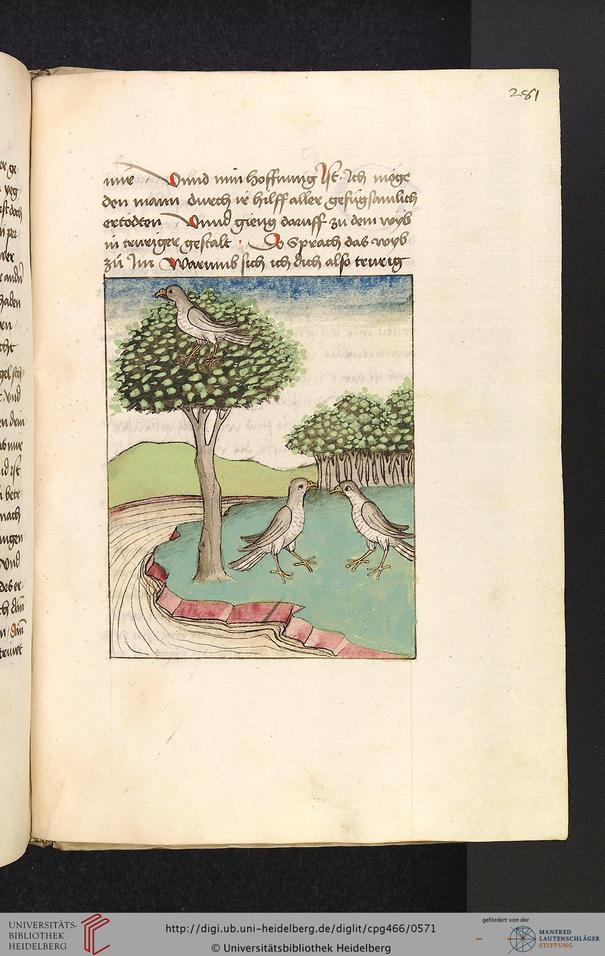 281
mir Vnnd min hoffnung Ist Ich möge
den mann durch ir hilff aller gefügsamlich
ertodten Vnnd gieng daruff zu dem wyb
in truriger gestalt · Do sprach das wyb
zů Im Warumb sich ich dich also trurig
UNIVERSITÄTS-
BIBLIOTHEK
HEIDELBERG
http://digi.ub.uni-heidelberg.de/diglit/cpg466/0571
© Universitätsbibliothek Heidelberg
gefördert von der
MANFRED
LAUTENSCHLÄGER
STIFTUNG